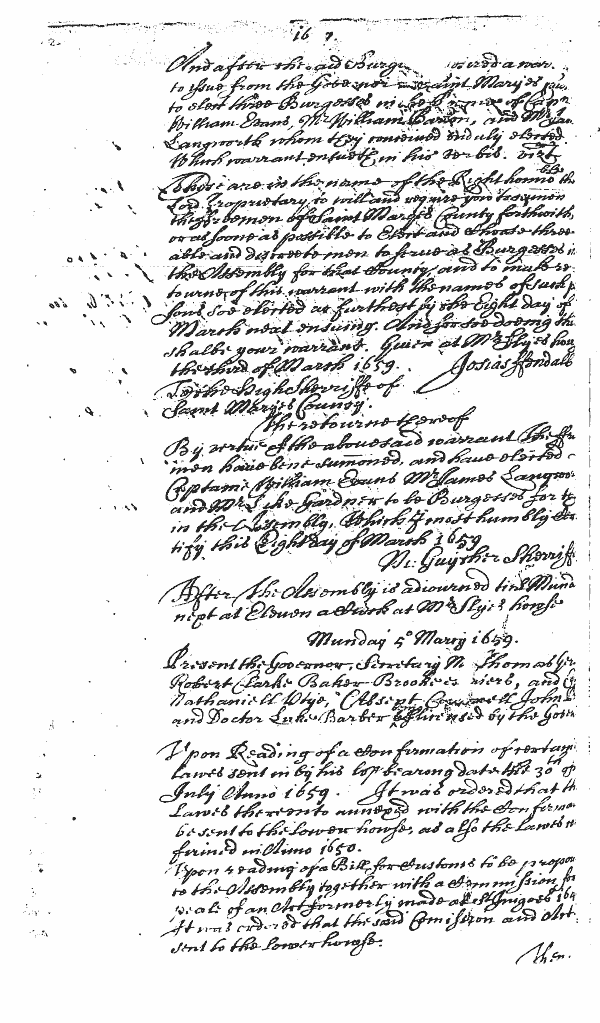 And after the said Burg
to issue from the Governor Saint Maryes
to elect three Burgesses
William Evans, Mr William Barton, and Mr
Langworth whom they conceived unduly elected
Which warrant ensueth in hiis verbis. vizt
These are in the name of the Right honno ble the
Lord Proprietary to will and require you to summon
the freemen of Saint Maryes County forthwith
or as soone as possible to Elect and choose three
able and discreete men to serve as Burgesses
the Assembly for that County and to make re
tourne of this warrant with the names of such p
sons soe elected at furthest by the Eight day of
March next ensuing. And for soe doeing this
shalbe your warrant. Given at Mr Slyes hou
the third of March 1659. Josias Fendall
To the High Sherriffe of
Saint Maryes County.
The retourne thereof
By vertue of the abovesaid warrant The ffre
men have bene summoned, and have elected
Captaine William Evans Mr James Langwo
and Mr Luke Gardner to be Burgesses for
in the Assembly, Which I most humbly Cer
tify this Eight day of March 1659
Ni: Guyther Sherriff
After, The Assembly is adiourned till Mund
next at Eleven a Clock at Mr Slyes howse
Munday 5o March 1659.
Present the Governor, Secretary Mr Thomas Ger
Robert Clarke Baker Brooke and
Nathaniell Utye, (Absent Coronell John
and Doctor Luke Barber being licensed by the Gover
Upon Reading of a Confirmation of certayn
Lawes sent in by his lop bearing date the 30th of
July Anno 1659. It was ordered that th
Lawes thereunto annexed with the Confirma
be sent to the lower howse, as also the Lawes
firmed in Anno 1650.
Upon reading of a Bill for Customs to be propou
to the Assembly together with a Commission for
peale of an Act formerly made at St Inigoes 164
It was ordered that the said Comission and Act
sent to the lower howse.
Then.